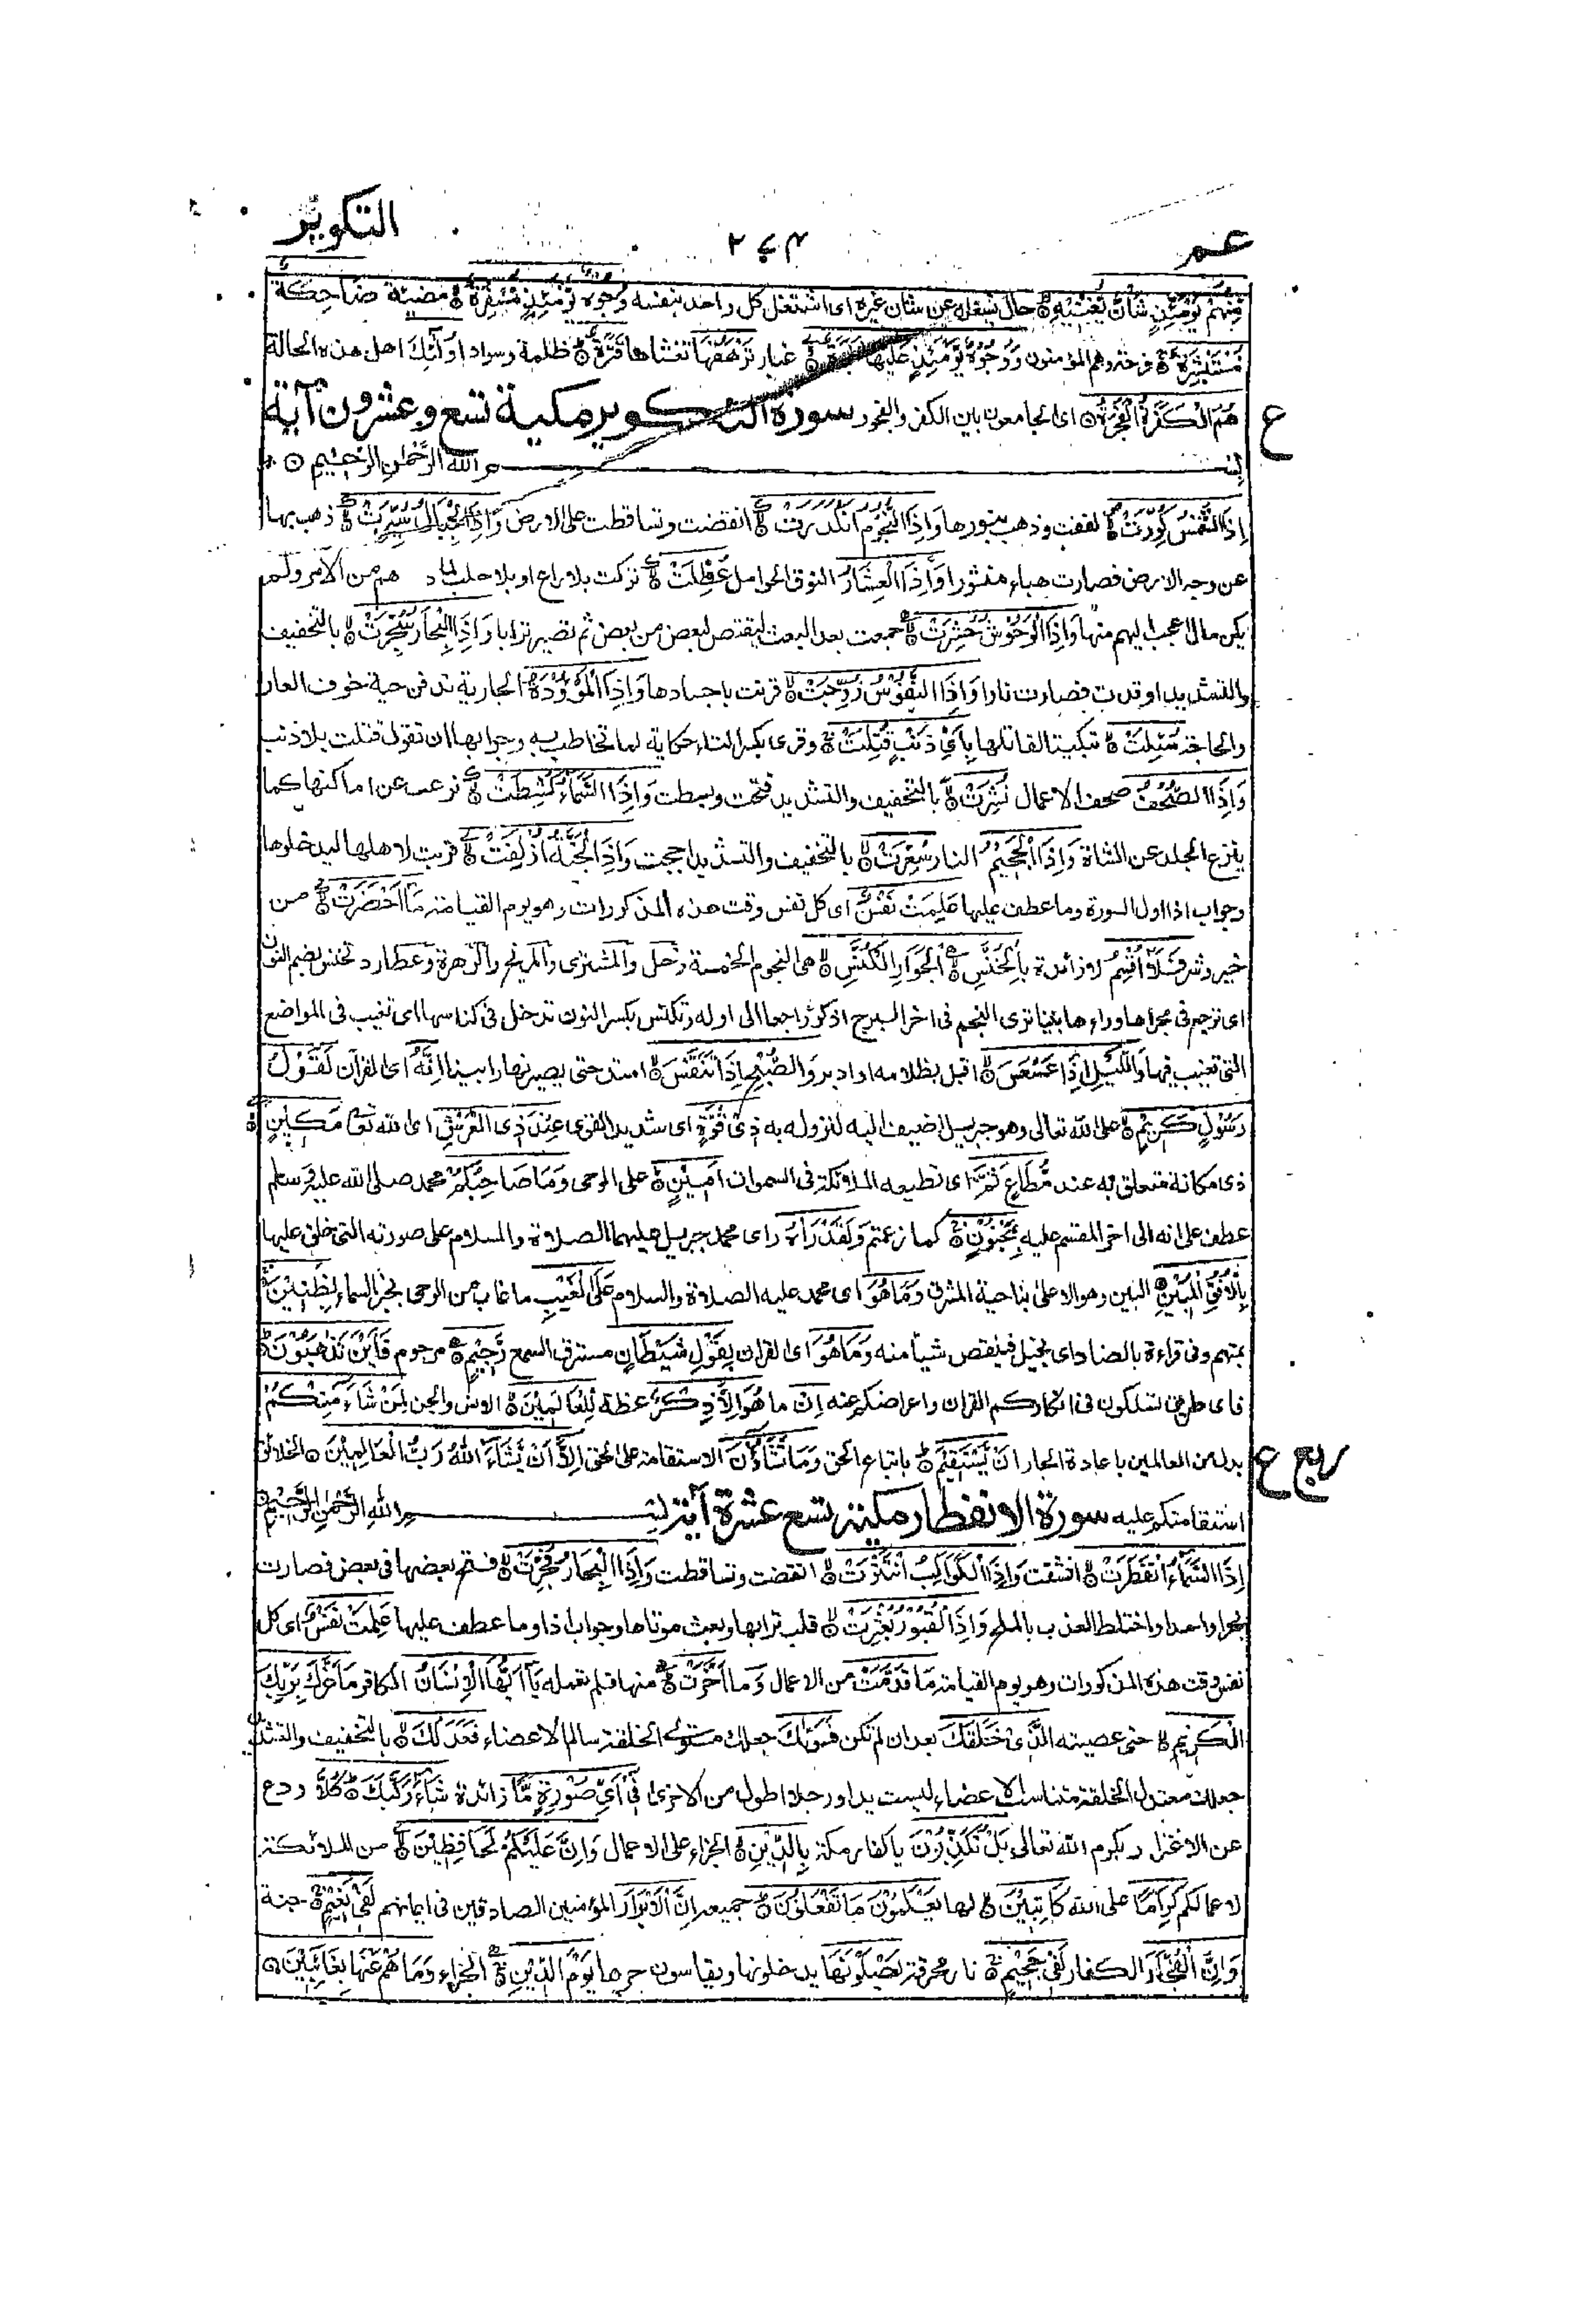 عم
٢٧٤
التكوير
مِّنْهُمْ يَوْمَئِذٍ شَأْنٌ يُّغْنِيْهِ حال يشغله عن شان غيره اى اشتغل كل واحد بنفسه وُجُوْهٌ يَّوْمَئِذٍ مُّسْفِرَةٌ مضيئة ضَاحِكَةٌ
مُّسْتَبْشِرَةٌ فرحة وهم المؤمنون وَوُجُوْهٌ يَّوْمَئِذٍ عَلَيْهَا غَبَرَةٌ غبار تَرْهَقُهَا تغشاها قَتَرَةٌ ظلمة وسواد اُولٰٓئِكَ اهل هذه الحالة
هُمُ الْكَفَرَةُ الْفَجَرَةُ اى الجامعون بين الكفر والفجور سورة التكوير مكية تسع وعشرون آية
بِسْمِ اللهِ الرَّحْمٰنِ الرَّحِيْمِ
اِذَا الشَّمْسُ كُوِّرَتْ لففت وذهب بنورها وَاِذَا النُّجُوْمُ انْكَدَرَتْ انقضت وتساقطت على الارض وَاِذَا الْجِبَالُ سُيِّرَتْ ذهب بها
عن وجه الارض فصارت هباء منثورا وَاِذَا الْعِشَارُ النوق الحوامل عُطِّلَتْ تركت بلا راع او بلا حلب لما دهم من الامر ولم
يكن مال اعجب اليهم منها وَاِذَا الْوُحُوْشُ حُشِرَتْ جمعت بعد البعث ليقتص لبعض من بعض ثم تصير ترابا وَاِذَا الْبِحَارُ سُجِّرَتْ بالتخفيف
والتشديد اوقدت فصارت نارا وَاِذَا النُّفُوْسُ زُوِّجَتْ قرنت باجسادها وَاِذَا الْمَوْءُوْدَةُ الجارية تدفن حية خوف العار
والحاجة سُئِلَتْ تبكيتا لقاتلها بِاَيِّ ذَنْبٍ قُتِلَتْ وقرئ بكسر التاء حكاية لما تخاطب به وجوابها ان تقول قتلت بلا ذنب
وَاِذَا الصُّحُفُ صحف الاعمال نُشِرَتْ بالتخفيف والتشديد فتحت وبسطت وَاِذَا السَّمَآءُ كُشِطَتْ نزعت عن اماكنها كما
ينزع الجلد عن الشاة وَاِذَا الْجَحِيْمُ النار سُعِّرَتْ بالتخفيف والتشديد اججت وَاِذَا الْجَنَّةُ اُزْلِفَتْ قربت لاهلها ليدخلوها
وجواب اذا اول السورة وما عطف عليها عَلِمَتْ نَفْسٌ اى كل نفس وقت هذه المذكورات وهو يوم القيامة مَّا اَحْضَرَتْ من
خير وشر فَلَآ اُقْسِمُ لا زائدة بِالْخُنَّسِ الْجَوَارِ الْكُنَّسِ هى النجوم الخمسة زحل والمشترى والمريخ والزهرة وعطارد تخنس بضم النون
اى ترجع فى مجراها وراءها بينا ترى النجم فى اخر البرج اذ كر راجعا الى اوله وتكنس بكسر النون تدخل فى كناسها اى تغيب فى المواضع
التى تغيب فيها وَالَّيْلِ اِذَا عَسْعَسَ اقبل بظلامه او ادبر وَالصُّبْحِ اِذَا تَنَفَّسَ امتد حتى يصير نهارا بينا اِنَّهٗ اى القرآن لَقَوْلُ
رَسُوْلٍ كَرِيْمٍ على الله تعالى وهو جبريل اضيف اليه لنزوله به ذِىْ قُوَّةٍ اى شديد القوى عِنْدَ ذِى الْعَرْشِ اى الله تعالى مَكِيْنٍ
ذى مكانة متعلق به عند مُّطَاعٍ ثَمَّ اى تطيعه الملائكة فى السموات اَمِيْنٍ على الوحى وَمَا صَاحِبُكُمْ محمد صلى الله عليه وسلم
عطف على انه الى اخر المقسم عليه بِمَجْنُوْنٍ كما زعمتم وَلَقَدْ رَاٰهُ راى محمد جبريل عليهما الصلاة والسلام على صورته التى خلق عليها
بِالْاُفُقِ الْمُبِيْنِ البين وهو الاعلى بناحية المشرق وَمَا هُوَ اى محمد عليه الصلاة والسلام عَلَى الْغَيْبِ ما غاب من الوحى وخبر السماء بِظَنِيْنٍ
بمتهم وفى قراءة بالضاد اى بخيل فينقص شيأ منه وَمَا هُوَ اى القران بِقَوْلِ شَيْطَانٍ مسترق السمع رَّجِيْمٍ مرجوم فَاَيْنَ تَذْهَبُوْنَ
فاى طريق تسلكون فى انكاركم القران واعراضكم عنه اِنْ ما هُوَ اِلَّا ذِكْرٌ عظة لِّلْعَالَمِيْنَ الانس والجن لِمَنْ شَآءَ مِنْكُمْ
بدل من العالمين باعادة الجار اَنْ يَّسْتَقِيْمَ باتباع الحق وَمَا تَشَآءُوْنَ الاستقامة على الحق اِلَّآ اَنْ يَّشَآءَ اللهُ رَبُّ الْعَالَمِيْنَ الخلائق
ربع ع
استقامتكم عليه سورة الانفطار مكية تسع عشرة آية بِسْمِ اللهِ الرَّحْمٰنِ الرَّحِيْمِ
اِذَا السَّمَآءُ انْفَطَرَتْ انشقت وَاِذَا الْكَوَاكِبُ انْتَثَرَتْ انقضت وتساقطت وَاِذَا الْبِحَارُ فُجِّرَتْ فتح بعضها فى بعض فصارت
بحرا واحدا واختلط العذب بالملح وَاِذَا الْقُبُوْرُ بُعْثِرَتْ قلب ترابها وبعث موتاها وجواب اذا وما عطف عليها عَلِمَتْ نَفْسٌ اى كل
نفس وقت هذه المذكورات وهو يوم القيامة مَا قَدَّمَتْ من الاعمال وَ ما اَخَّرَتْ منها فلم تعمله يَآ اَيُّهَا الْاِنْسَانُ الكافر مَا غَرَّكَ بِرَبِّكَ
الْكَرِيْمِ حتى عصيته الَّذِىْ خَلَقَكَ بعد ان لم تكن فَسَوّٰىكَ جعلك مستوى الخلقة سالم الاعضاء فَعَدَلَكَ بالتخفيف والتشديد
جعلك معتدل الخلقة متناسب الاعضاء ليست يد او رجل اطول من الاخرى فِىْٓ اَىِّ صُوْرَةٍ مَّا زائدة شَآءَ رَكَّبَكَ كَلَّا ردع
عن الاغترار بكرم الله تعالى بَلْ تُكَذِّبُوْنَ يا كفار مكة بِالدِّيْنِ الجزاء على الاعمال وَاِنَّ عَلَيْكُمْ لَحَافِظِيْنَ من الملائكة
لاعمالكم كِرَامًا على الله كَاتِبِيْنَ لها يَعْلَمُوْنَ مَا تَفْعَلُوْنَ جميعه اِنَّ الْاَبْرَارَ المؤمنين الصادقين فى ايمانهم لَفِىْ نَعِيْمٍ جنة
وَاِنَّ الْفُجَّارَ الكفار لَفِىْ جَحِيْمٍ نار محرقة يَّصْلَوْنَهَا يدخلونها ويقاسون حرها يَوْمَ الدِّيْنِ الجزاء وَمَا هُمْ عَنْهَا بِغَآئِبِيْنَ